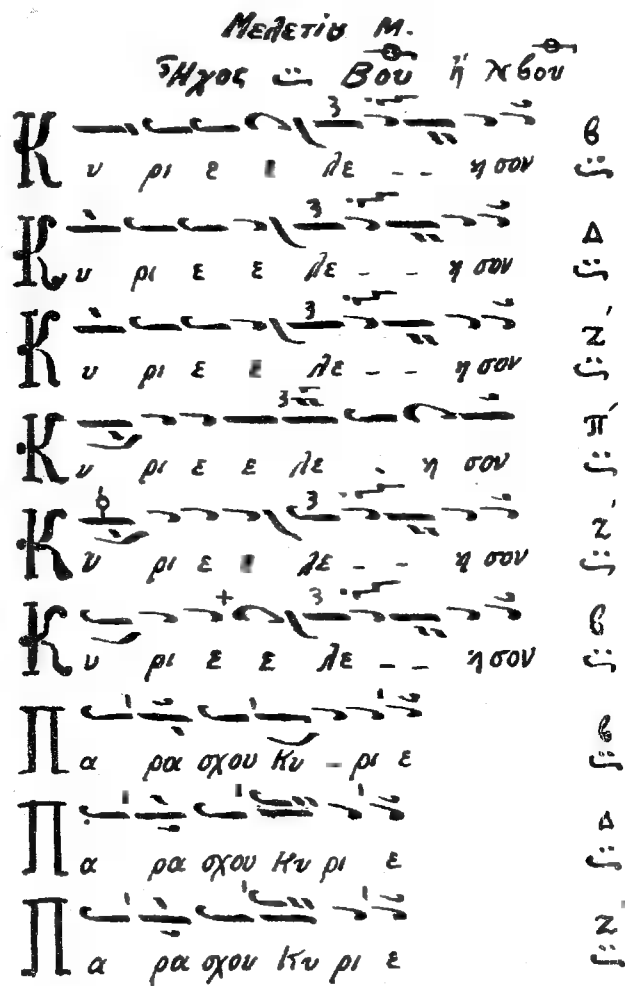 Μελετίου Μ.
Ἦχος Βου ἢ λβου
Κυ ρι ε ε λε - - η σον β
Κυ ρι ε ε λε - - η σον Δ
Κυ ρι ε ε λε - - η σον Ζ΄
Κυ ρι ε ε λε η σον π΄
Κυ ρι ε ε λε - - η σον Ζ΄
Κυ ρι ε ε λε - - η σον β
Πα ρα σχου Κυ - ρι ε β
Πα ρα σχου Κυ ρι ε Δ
Πα ρα σχου Κυ ρι ε Ζ΄